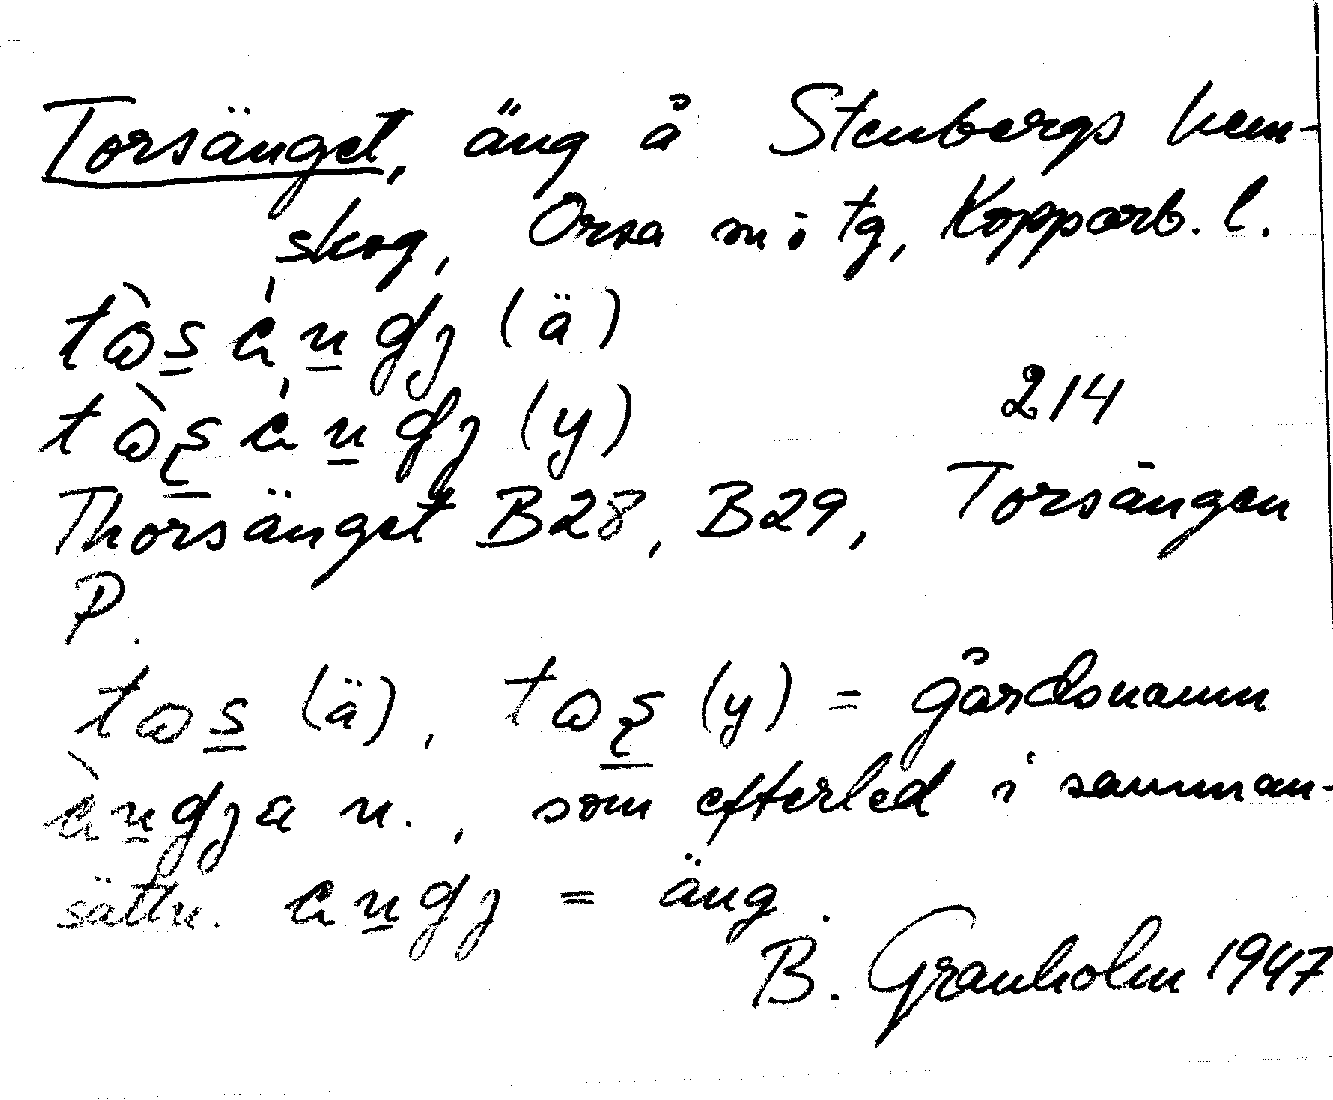 Torsänget, äng å Stenbergs hem-
skog, Orsa sn i tg, Kopparb. l.
(ä)
(y) 214
Thorsänget B28, B29, Torsängen
P.
(ä), (y) = gårdsnamn
n., som efterled i samman-
sättn. = äng.
B. Granholm 1947